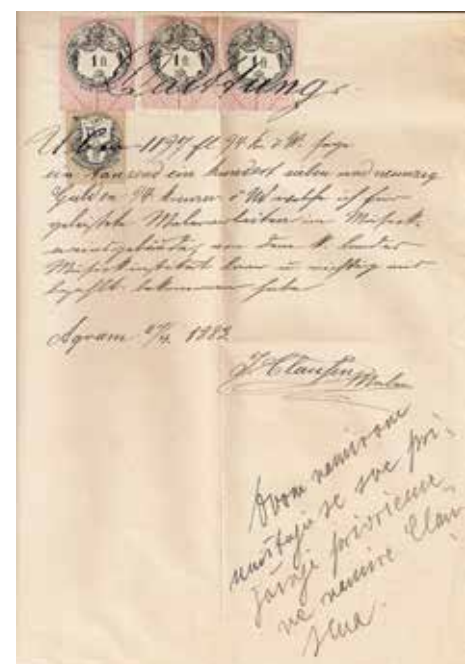 1 fl 1 fl 1 fl
Quittung
Über 1197 fl 94 k ö W. sage
ein tausend ein hundert sieben und neunzig
Gulden 94 kreuzer ö W welche ich für
geleistete Malerarbeiten im Musik-
vereinsgebäude, von dem k. Landes
Musikinstitut baar u. richtig aus
bezahlt bekommen habe
Agram 1882
J. Clausen Maler
Ovom namirom
uništuju se sve pri-
jašnje privremene
namire Clau-
sena.